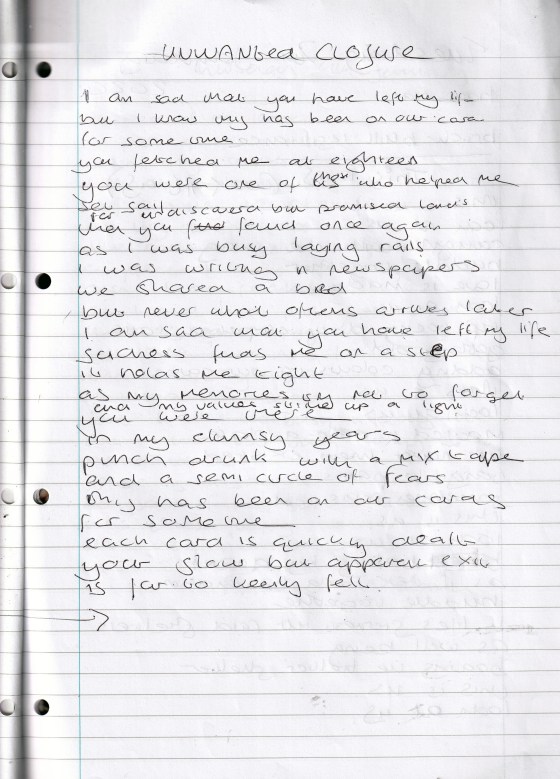 UNWANTED CLOSURE
I am sad that you have left my life
but I know this has been on our cards
for some time
you fetched me at eighteen
you were one of those who helped me
set sail
for undiscovered but promised lands
then you found once again
as I was busy laying rails
I was writing in newspapers
we shared a bed
but never what often arrives later
I am sad that you have left my life
sadness finds me on a step
it holds me tight
as my memories try not to forget
and my values shine up a light
you were there
in my clumsy years
punch drunk with a mix tape
and a semi circle of fears
this has been on our cards
for some time
each card is quickly dealt
your slow but apparent exit
is far too keenly felt